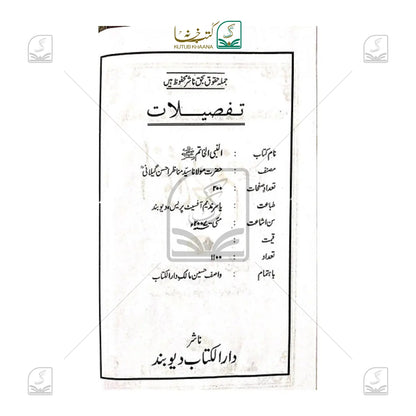 کتب خانہ
KUTUB KHAANA
جملہ حقوق بحق ناشر محفوظ ہیں
تفصیلات
نام کتاب : النبی الخاتم ﷺ
مصنف : حضرت مولانا سید مناظر احسن گیلانیؒ
تعداد صفحات : ۲۰۰
طباعت : یاسر ندیم آفسیٹ پریس دیوبند
سن اشاعت : مئی ۲۰۰۷ء
قیمت :
تعداد : ۱۱۰۰
باہتمام : واصف حسین مالک دارالکتاب
ناشر
دارالکتاب دیوبند